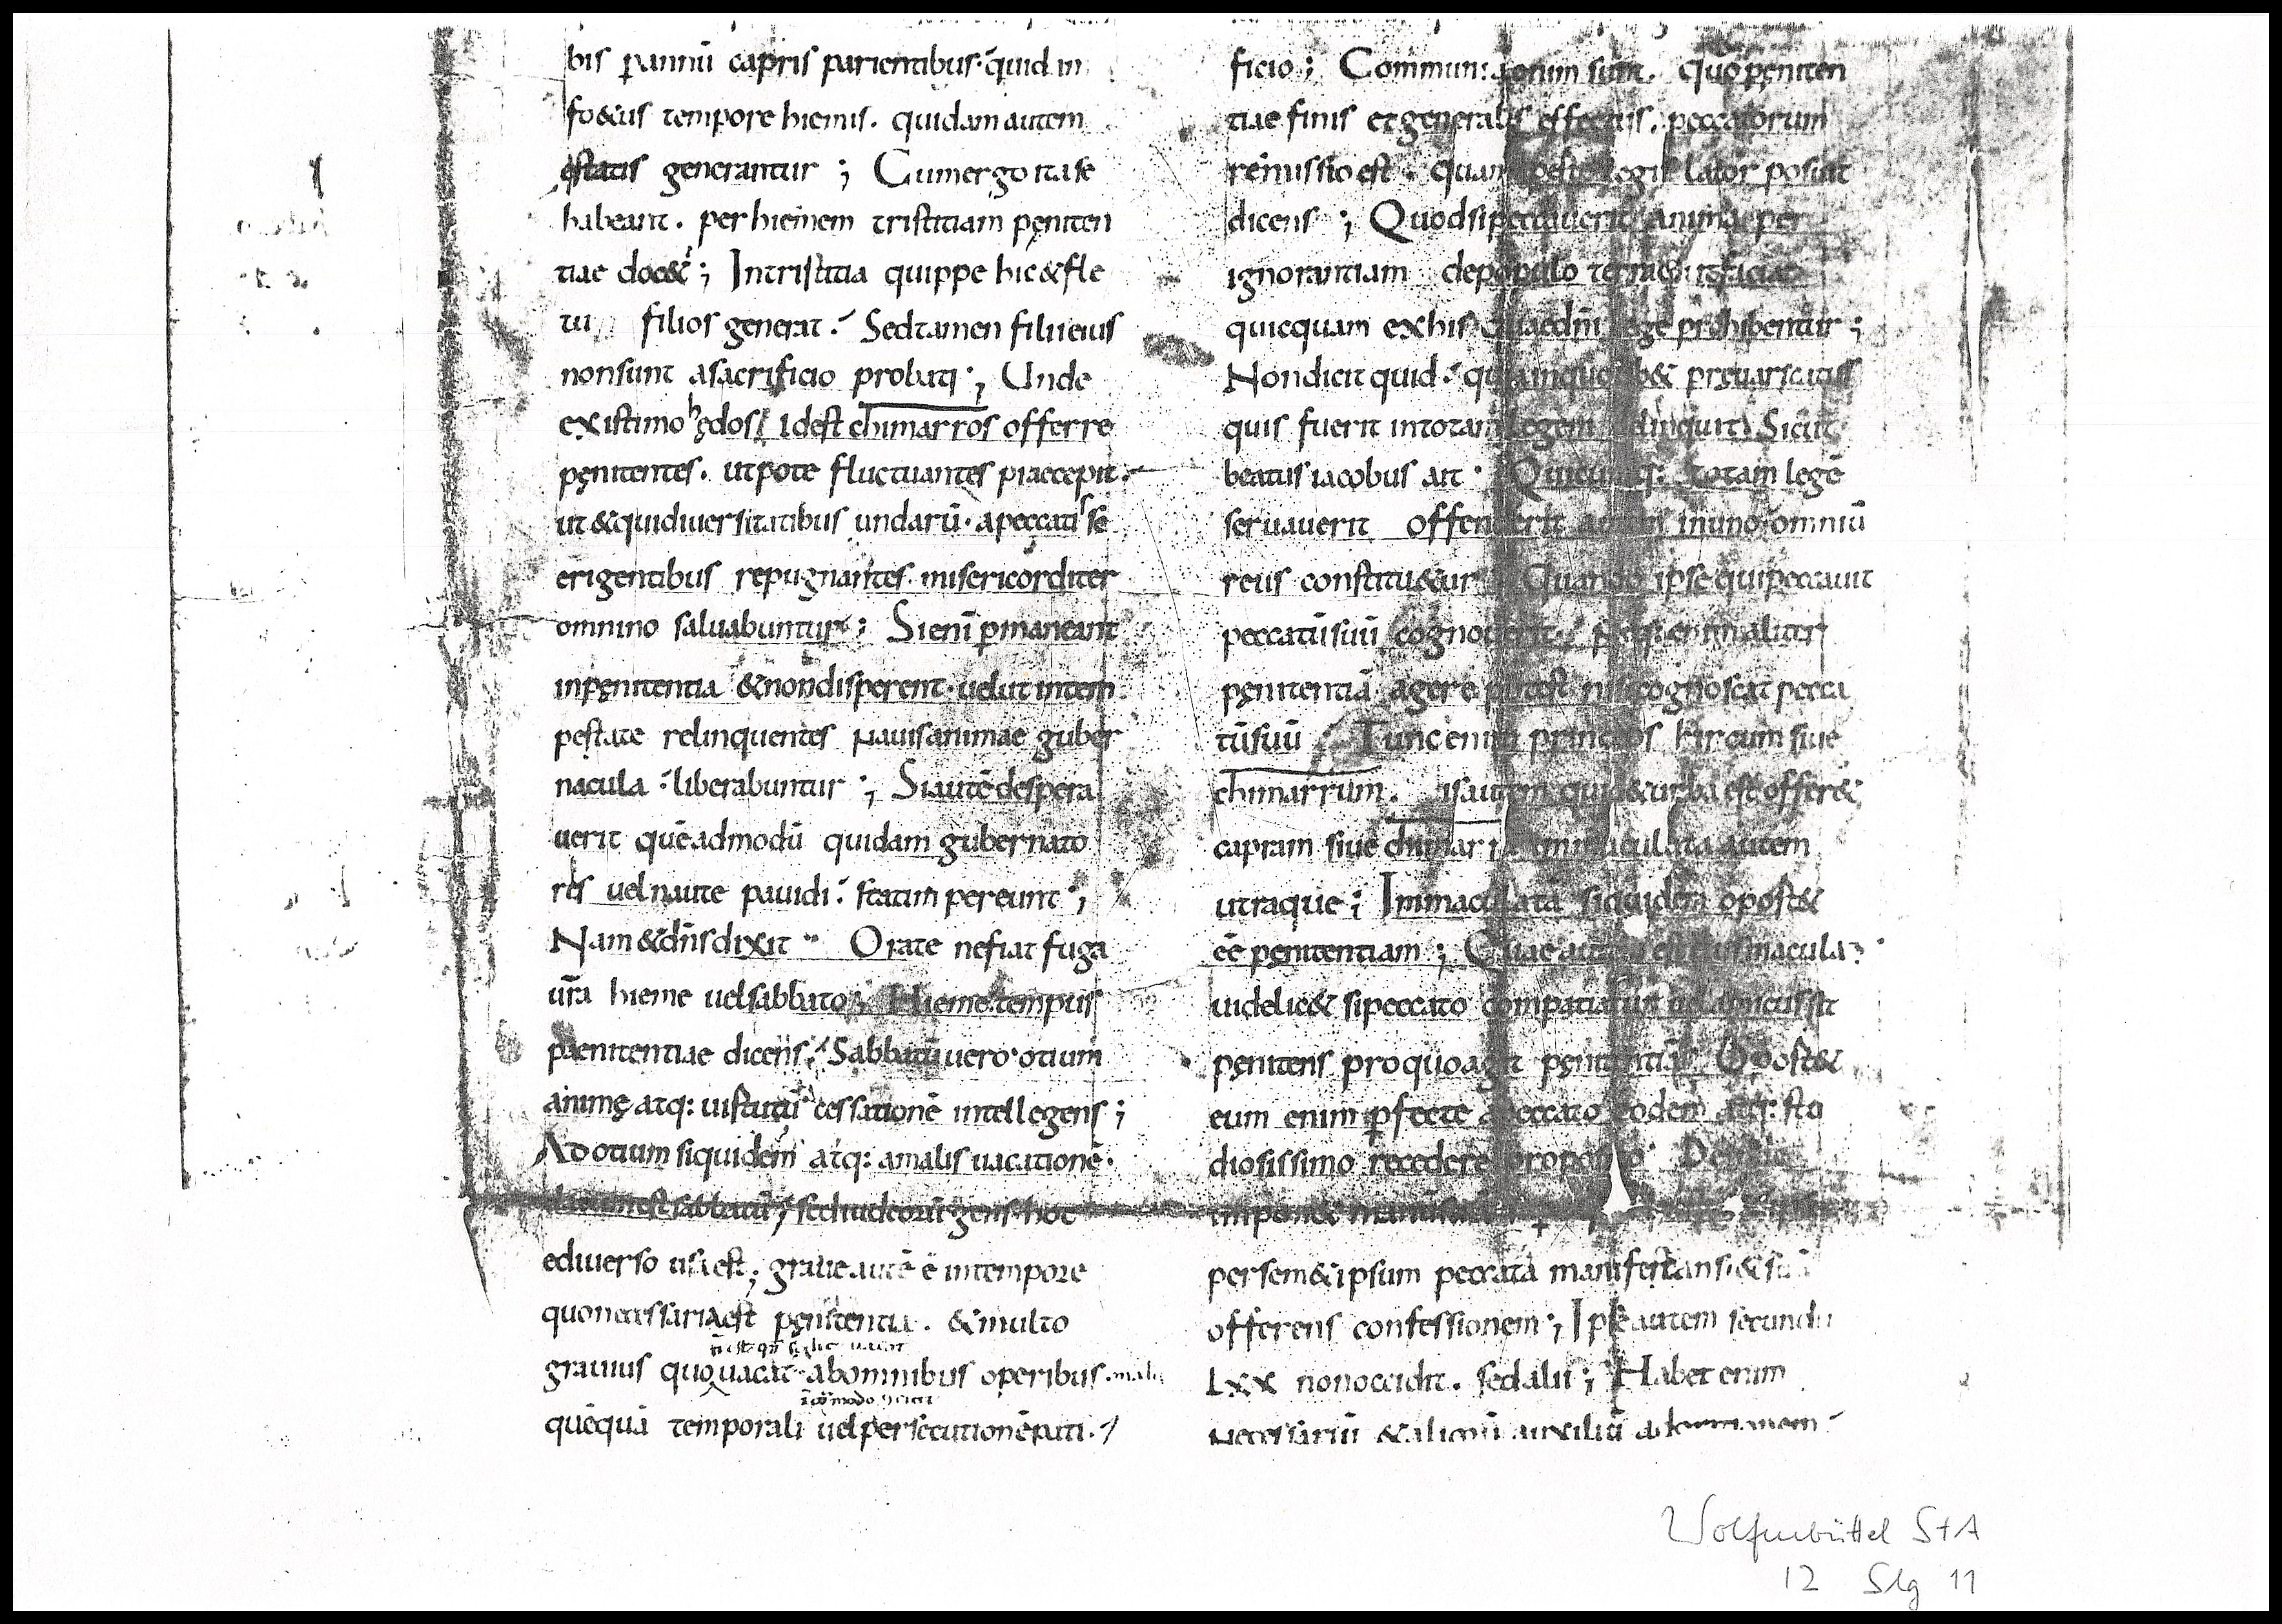 bis pannū capris parientibus· quid in
fo&us tempore hiemis. quidam autem
ęstatis generantur ; Cum ergo ita se
habeant. per hiemem tristitiam pęniten
tiae doc& ; In tristitia quippe hic & fle
tu filios generat. Sed tamen filii eius
non sunt a sacrificio probati ; Unde
existimo hędos idest chimarros offerre
pęnitentes. utpote fluctuantes praecepit.
ut & qui diuersitatibus undarū. a peccatis se
erigentibus repugnantes misericorditer
omnino saluabuntur ; Si enī pmaneant
in pęnitentia & non disperent. uelut in tem
pestate relinquentes nauis animae guber
nacula liberabuntur ; Si autē despera
uerit quēadmodū quidam gubernato
res uel naute pauidi. statim pereunt ;
Nam & dn̄s dixit Orate ne fiat fuga
ur̄a hieme uel sabbato ; Hieme tempus
paenitentiae dicens. Sabbatū uero otium
animę atq: uirtutū cessationē intellegens ;
Ad otium siquidem atq: a malis uacationē.
est sabbatū ; sed iudeorū gens hoc
e diuerso usa est ; graue autē ē in tempore
quo necessaria est pęnitentia. & multo
grauius quo uacat ab omnibus operibus. malis
quēquā temporali uel persecutionē pati.
ficio ; Commun sunt. quo pęniten
tiae finis et generalis effectus. peccatorum
remissio est. legis lator posuit
dicens ; Quod si peccauerit anima per
ignorantiam de populo terrae ut faciat
quicquam ex his quae dn̄i lege prohibentur ;
Non dicit quid. pręuaricatus
quis fuerit in totam legem delinquit Sicut
beatus iacobus ait. Quicumq: totam legē
seruauerit offenderit autem in uno omniū
reus constitu&ur Quando ipse qui peccauit
peccatū suū cognouerit. Neq: enim aliter
pęnitentiā agere potest nisi cognoscat pecca
tū suū Tunc enim princeps hircum siue
chimarrum. is autem qui de turba est offer&
capram siue immaculata autem
utraque ; Immaculatā siquidem oport&
eē pęnitentiam ; Quae autem est eius macula
uidelic& si peccato compatiatur uel amicus sit
pęnitens pro quo agit pęnitentiā Oport&
eum enim pfecte a peccato eodem atq: stu
diosissimo recedere proposito
impon& manū
per sem&ipsum peccata manifestans &
offerens confessionem ; Ipse autem secundū
Lxx non occidit. sed alii ; Habet enim
necessariū & aliorū auxiliū
Wolfenbüttel StA
12 Slg 11